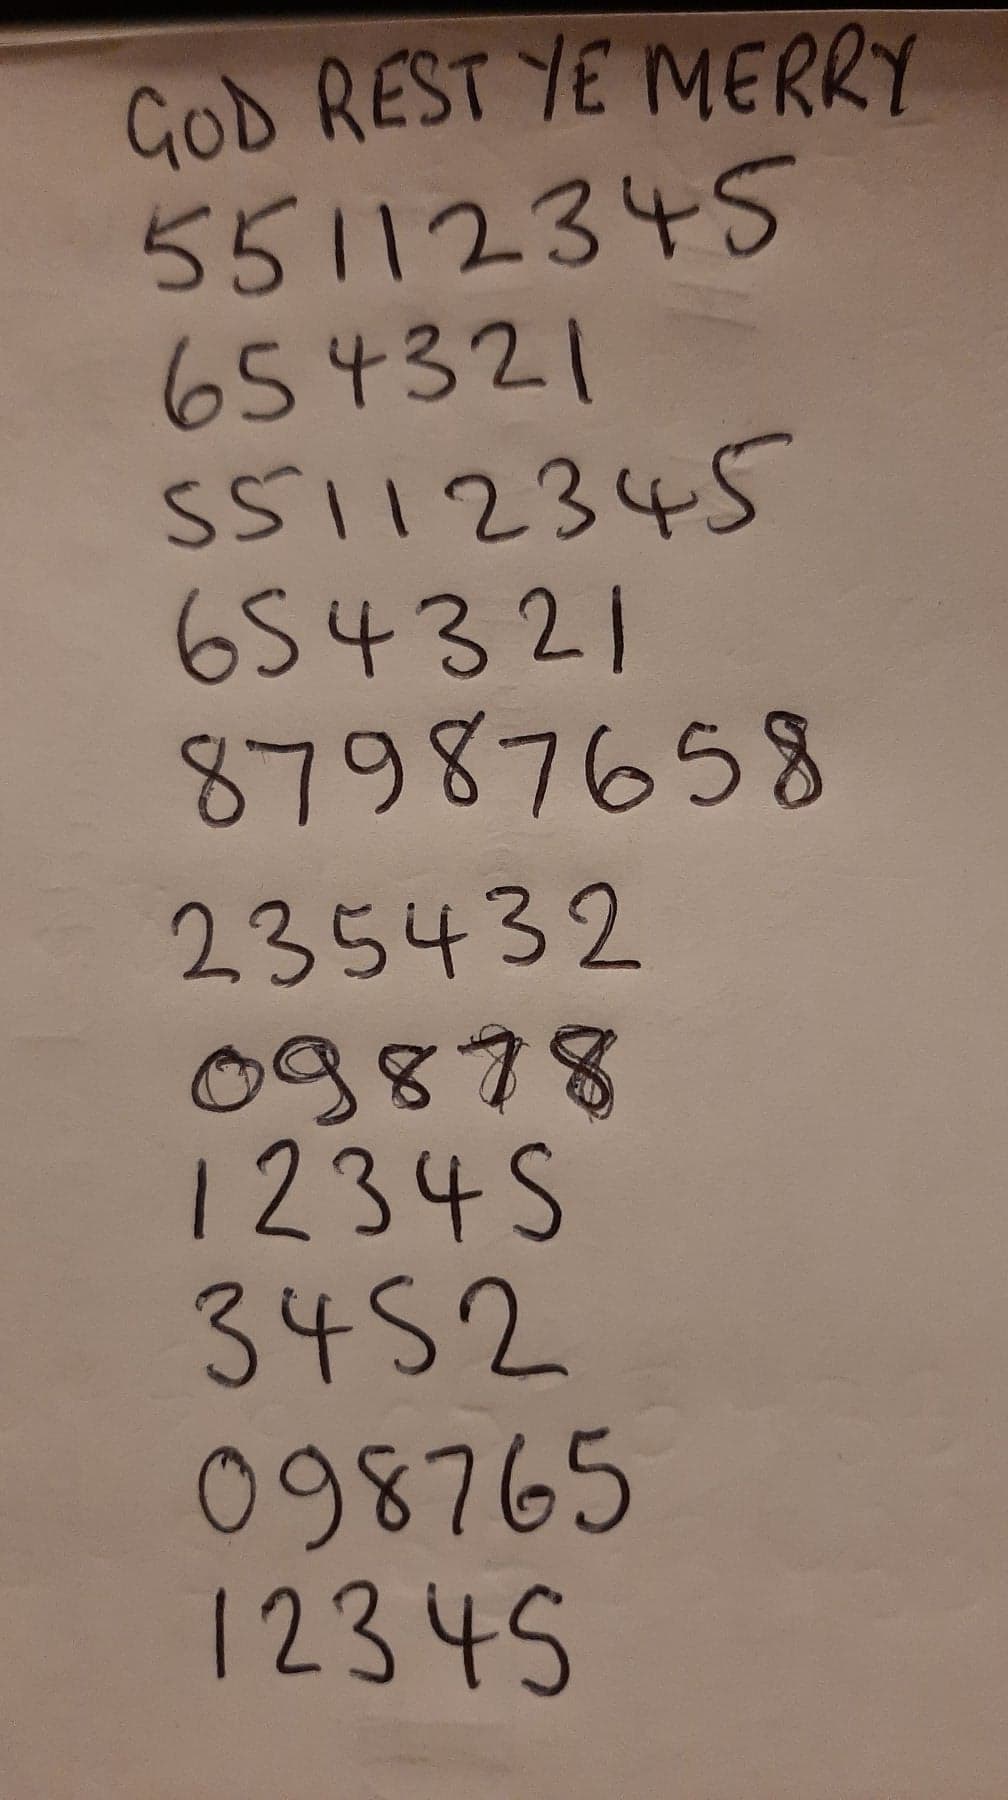 GOD REST YE MERRY
55112345
654321
55112345
654321
87987658
235432
09878
12345
3452
098765
12345